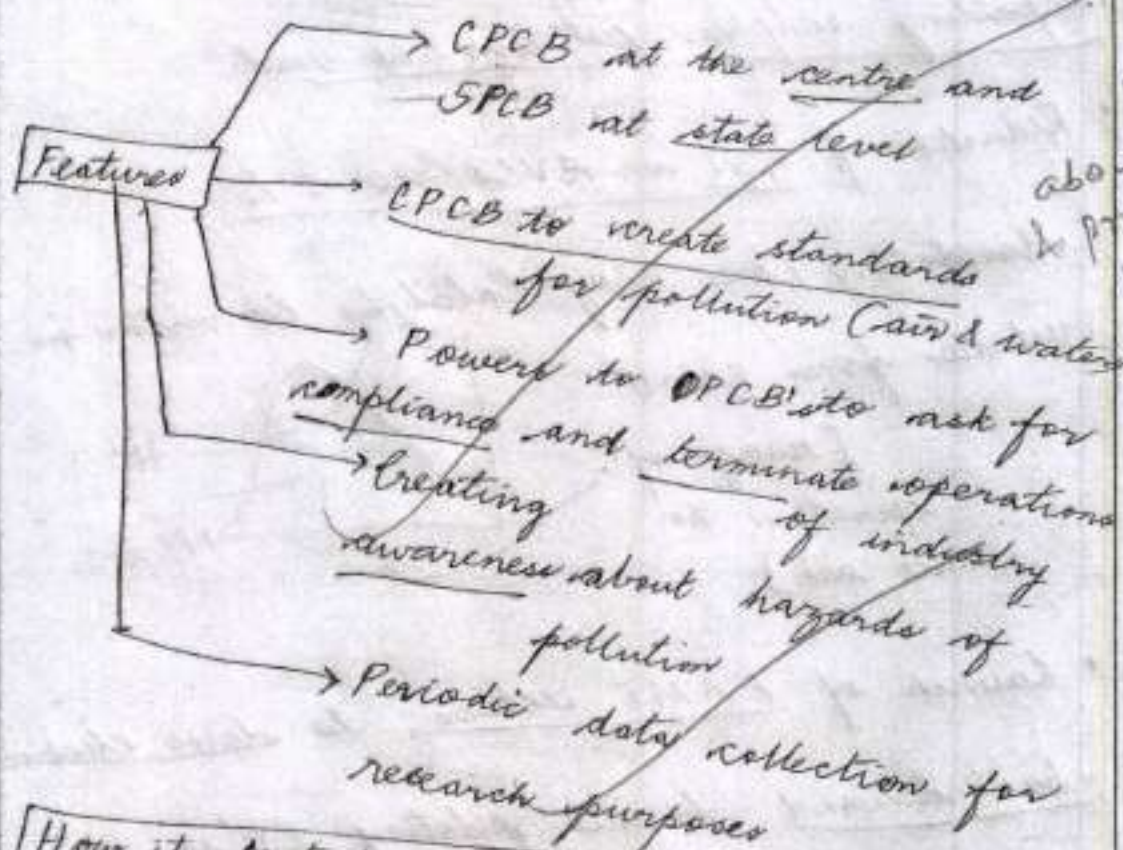 CPCB at the centre and
SPCB at state level
Features
CPCB to create standards
for pollution (air & water)
Powers to PCB's to ask for
compliance and terminate operations
of industry
Creating
awareness about hazards of
pollution
Periodic data collection for
research purposes